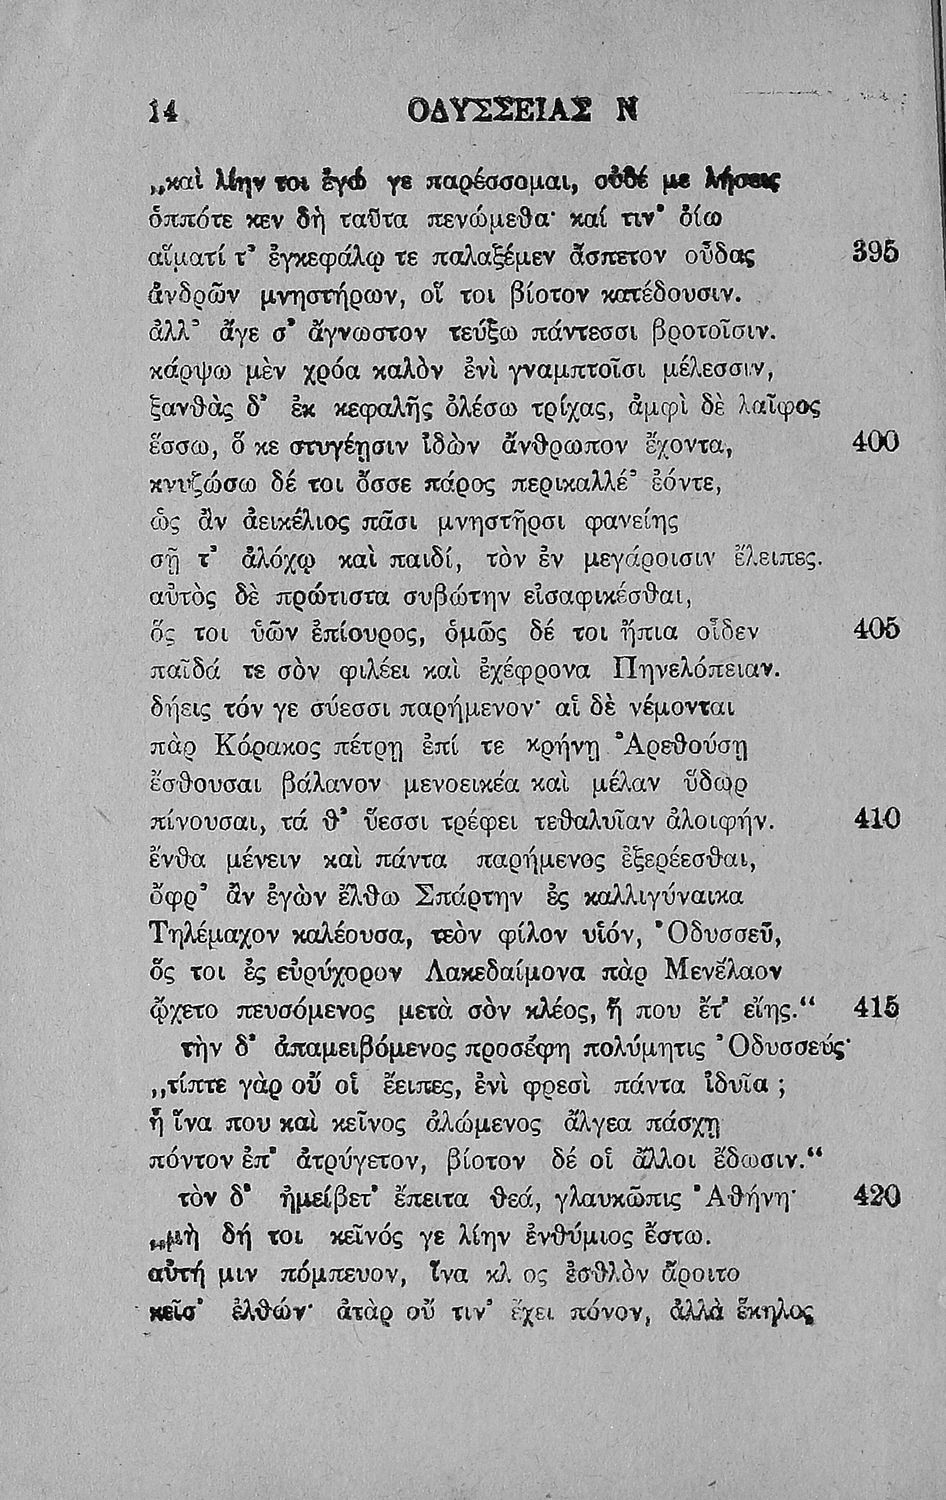 14 ΟΔΥΣΣΕΙΑΣ Ν
„καὶ λίην τοι ἐγώ γε παρέσσομαι, οὐδέ με λήσεις
ὁππότε κεν δὴ ταῦτα πενώμεθα· καί τιν' ὀίω
αἵματί τ' ἐγκεφάλῳ τε παλαξέμεν ἄσπετον οὖδας 395
ἀνδρῶν μνηστήρων, οἵ τοι βίοτον κατέδουσιν.
ἀλλ' ἄγε σ' ἄγνωστον τεύξω πάντεσσι βροτοῖσιν.
κάρψω μὲν χρόα καλὸν ἐνὶ γναμπτοῖσι μέλεσσιν,
ξανθὰς δ' ἐκ κεφαλῆς ὀλέσω τρίχας, ἀμφὶ δὲ λαῖφος
ἕσσω, ὅ κε στυγέῃσιν ἰδὼν ἄνθρωπον ἔχοντα, 400
κνυζώσω δέ τοι ὄσσε πάρος περικαλλέ' ἐόντε,
ὡς ἂν ἀεικέλιος πᾶσι μνηστῆρσι φανείης
σῇ τ' ἀλόχῳ καὶ παιδί, τὸν ἐν μεγάροισιν ἔλειπες.
αὐτὸς δὲ πρώτιστα συβώτην εἰσαφικέσθαι,
ὅς τοι ὑῶν ἐπίουρος, ὁμῶς δέ τοι ἤπια οἶδεν 405
παῖδά τε σὸν φιλέει καὶ ἐχέφρονα Πηνελόπειαν.
δήεις τόν γε σύεσσι παρήμενον· αἱ δὲ νέμονται
πὰρ Κόρακος πέτρῃ ἐπί τε κρήνῃ Ἀρεθούσῃ
ἔσθουσαι βάλανον μενοεικέα καὶ μέλαν ὕδωρ
πίνουσαι, τά θ' ὕεσσι τρέφει τεθαλυῖαν ἀλοιφήν. 410
ἔνθα μένειν καὶ πάντα παρήμενος ἐξερέεσθαι,
ὄφρ' ἂν ἐγὼν ἔλθω Σπάρτην ἐς καλλιγύναικα
Τηλέμαχον καλέουσα, τεὸν φίλον υἱόν, Ὀδυσσεῦ,
ὅς τοι ἐς εὐρύχορον Λακεδαίμονα πὰρ Μενέλαον
ᾤχετο πευσόμενος μετὰ σὸν κλέος, ἤ που ἔτ' εἴης.“ 415
τὴν δ' ἀπαμειβόμενος προσέφη πολύμητις Ὀδυσσεύς·
„τίπτε γὰρ οὔ οἱ ἔειπες, ἐνὶ φρεσὶ πάντα ἰδυῖα ;
ἦ ἵνα που καὶ κεῖνος ἀλώμενος ἄλγεα πάσχῃ
πόντον ἐπ' ἀτρύγετον, βίοτον δέ οἱ ἄλλοι ἔδωσιν.“
τὸν δ' ἠμείβετ' ἔπειτα θεά, γλαυκῶπις Ἀθήνη· 420
„μὴ δή τοι κεῖνός γε λίην ἐνθύμιος ἔστω.
αὐτή μιν πόμπευον, ἵνα κλ ος ἐσθλὸν ἄροιτο
κεῖσ' ἐλθών· ἀτὰρ οὔ τιν' ἔχει πόνον, ἀλλὰ ἕκηλος